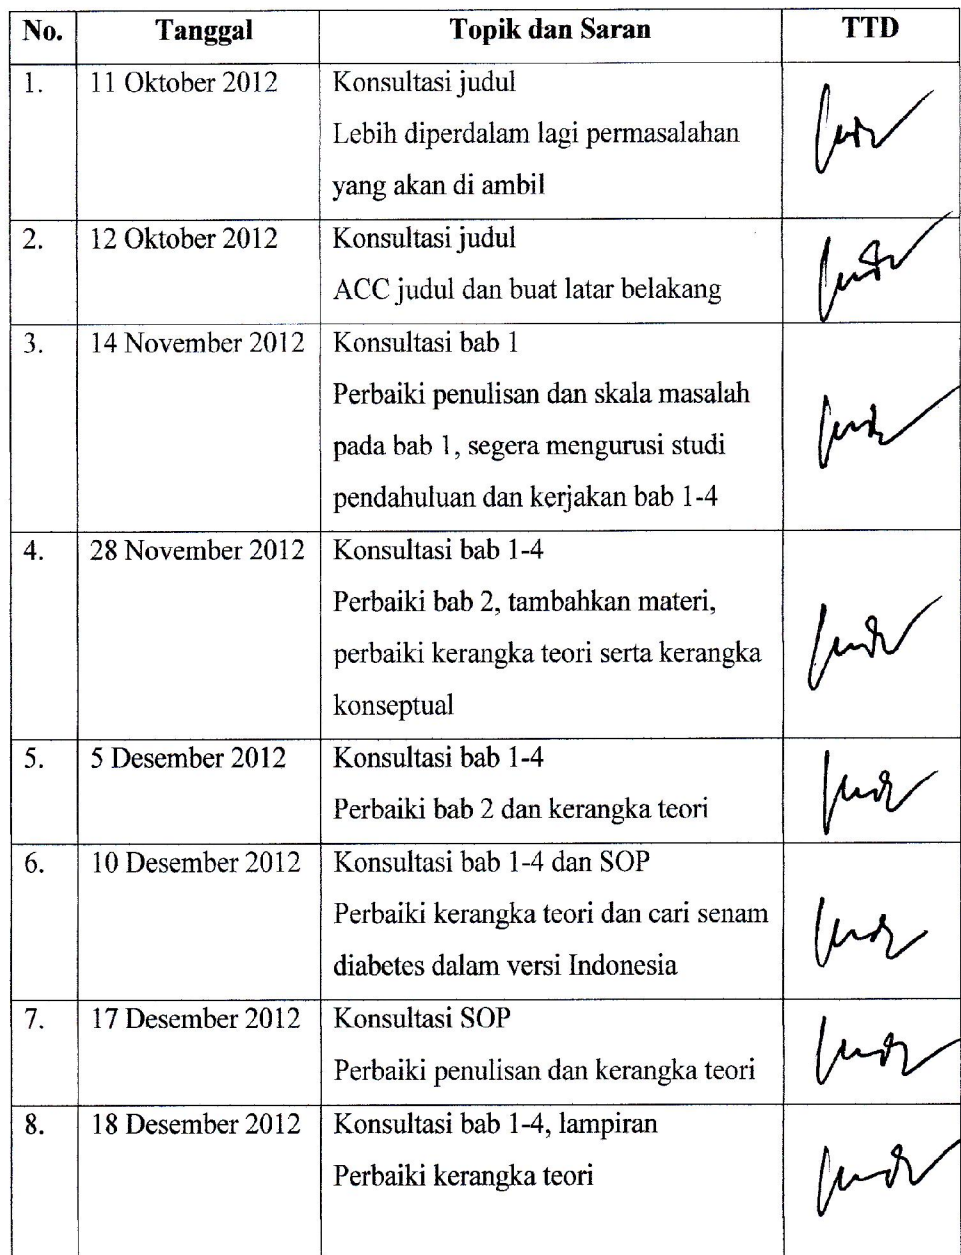 No. Tanggal Topik dan Saran TTD
1. 11 Oktober 2012 Konsultasi judul
Lebih diperdalam lagi permasalahan
yang akan di ambil
2. 12 Oktober 2012 Konsultasi judul
ACC judul dan buat latar belakang
3. 14 November 2012 Konsultasi bab 1
Perbaiki penulisan dan skala masalah
pada bab 1, segera mengurusi studi
pendahuluan dan kerjakan bab 1-4
4. 28 November 2012 Konsultasi bab 1-4
Perbaiki bab 2, tambahkan materi,
perbaiki kerangka teori serta kerangka
konseptual
5. 5 Desember 2012 Konsultasi bab 1-4
Perbaiki bab 2 dan kerangka teori
6. 10 Desember 2012 Konsultasi bab 1-4 dan SOP
Perbaiki kerangka teori dan cari senam
diabetes dalam versi Indonesia
7. 17 Desember 2012 Konsultasi SOP
Perbaiki penulisan dan kerangka teori
8. 18 Desember 2012 Konsultasi bab 1-4, lampiran
Perbaiki kerangka teori